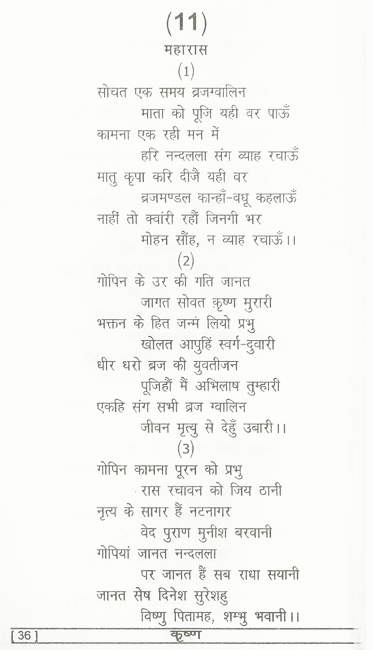 (11)
महारास
(1)
सोचत एक समय ब्रजग्वालिन
माता को पूजि यही वर पाऊँ
कामना एक रही मन में
हरि नन्दलला संग व्याह रचाऊँ
मातु कृपा करि दीजै यही वर
ब्रजमण्डल कान्हाँ-वधू कहलाऊँ
नाहीं तो क्वांरी रहौं जिनगी भर
मोहन सौंह, न व्याह रचाऊँ।।
(2)
गोपिन के उर की गति जानत
जागत सोवत कृष्ण मुरारी
भक्तन के हित जन्मं लियो प्रभु
खोलत आपुहिं स्वर्ग-दुवारी
धीर धरो ब्रज की युवतीजन
पूजिहौं मैं अभिलाष तुम्हारी
एकहि संग सभी ब्रज ग्वालिन
जीवन मृत्यु से देहुँ उबारी।।
(3)
गोपिन कामना पूरन को प्रभु
रास रचावन को जिय ठानी
नृत्य के सागर हैं नटनागर
वेद पुराण मुनीश बरवानी
गोपियां जानत नन्दलला
पर जानत हैं सब राधा सयानी
जानत सेष दिनेश सुरेशहु
विष्णु पितामह, शम्भु भवानी।।
[36] कृष्ण